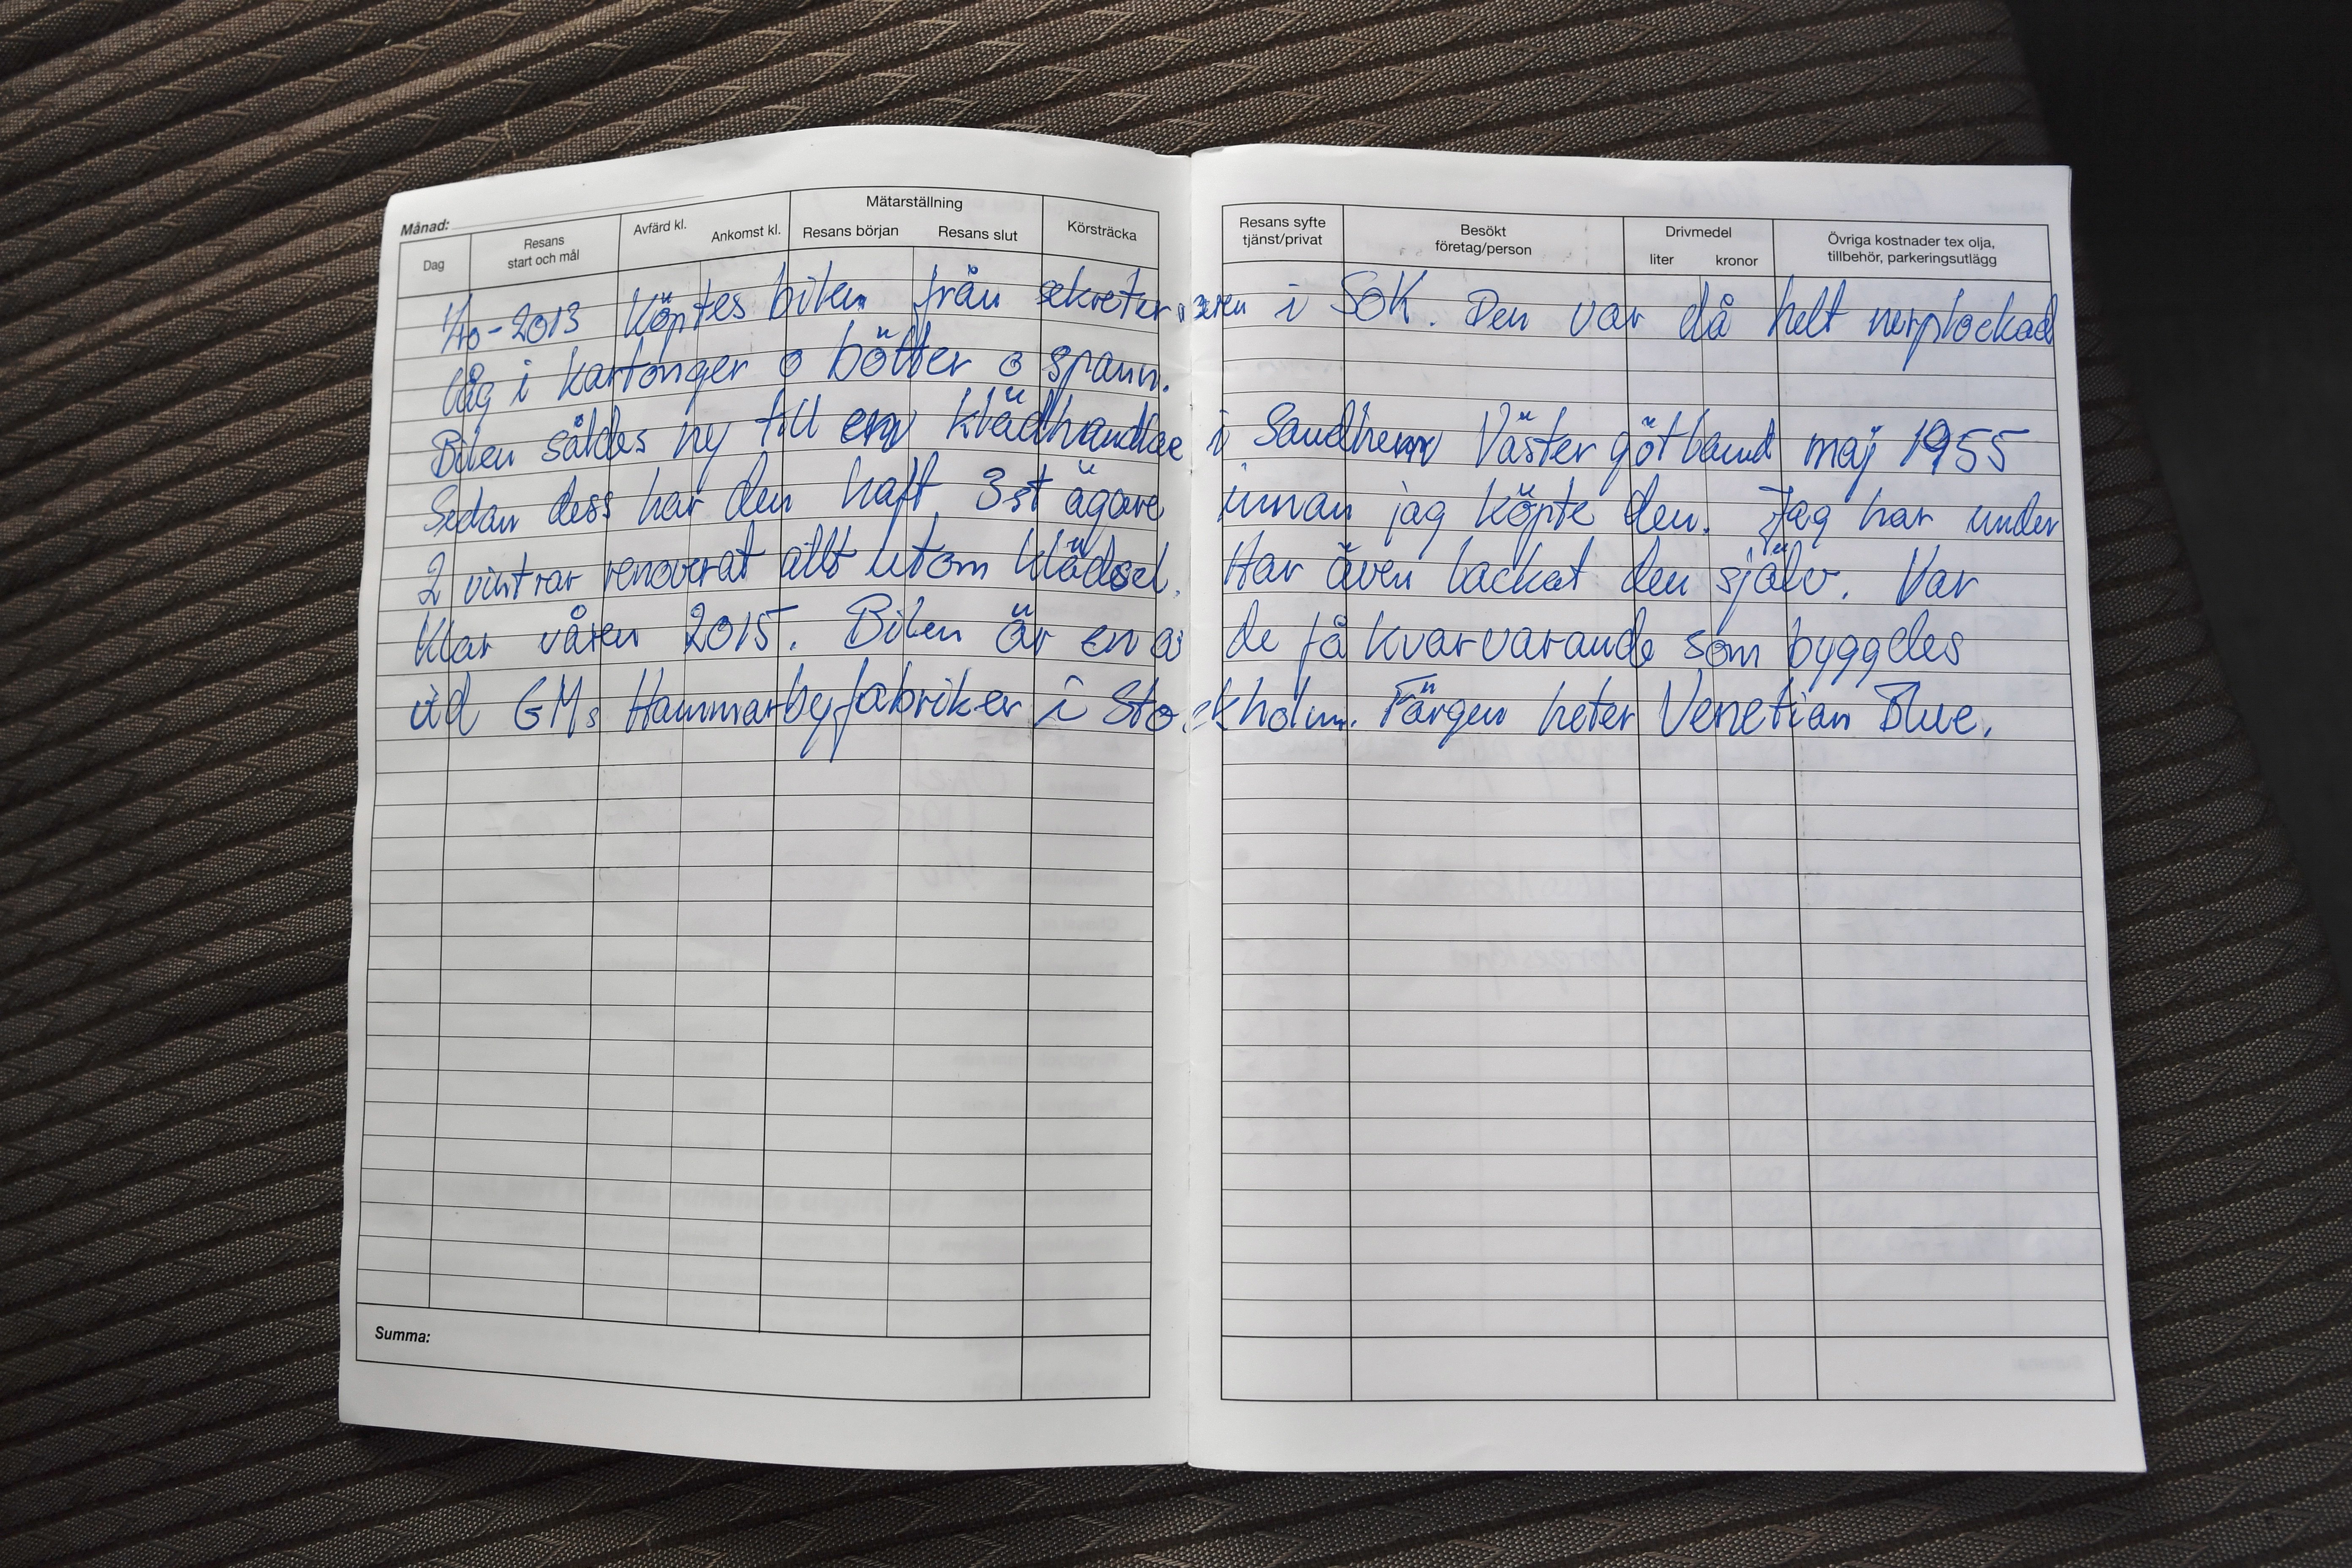 Månad:
Dag
Resans
start och mål
Avfärd kl.
Ankomst kl.
Mätarställning
Resans början
Resans slut
Körsträcka
Resans syfte
tjänst/privat
Besökt
företag/person
Drivmedel
liter
kronor
Övriga kostnader tex olja,
tillbehör, parkeringsutlägg
1/10-2013 Köptes bilen från sekreteraren i SOK. Den var då helt nerplockad
låg i kartonger o bötter o spann.
Bilen såldes ny till en klädhandlae i Sandhem Västergötland maj 1955
Sedan dess har den haft 3st ägare innan jag köpte den. Jag har under
2 vintrar renoverat allt utom klädsel. Har även lackat den själv. Var
klar våren 2015. Bilen är en a de få kvarvarande som byggdes
vid GMs Hammarbyfabriker i Stockholm. Färgen heter Venetian Blue.
Summa: